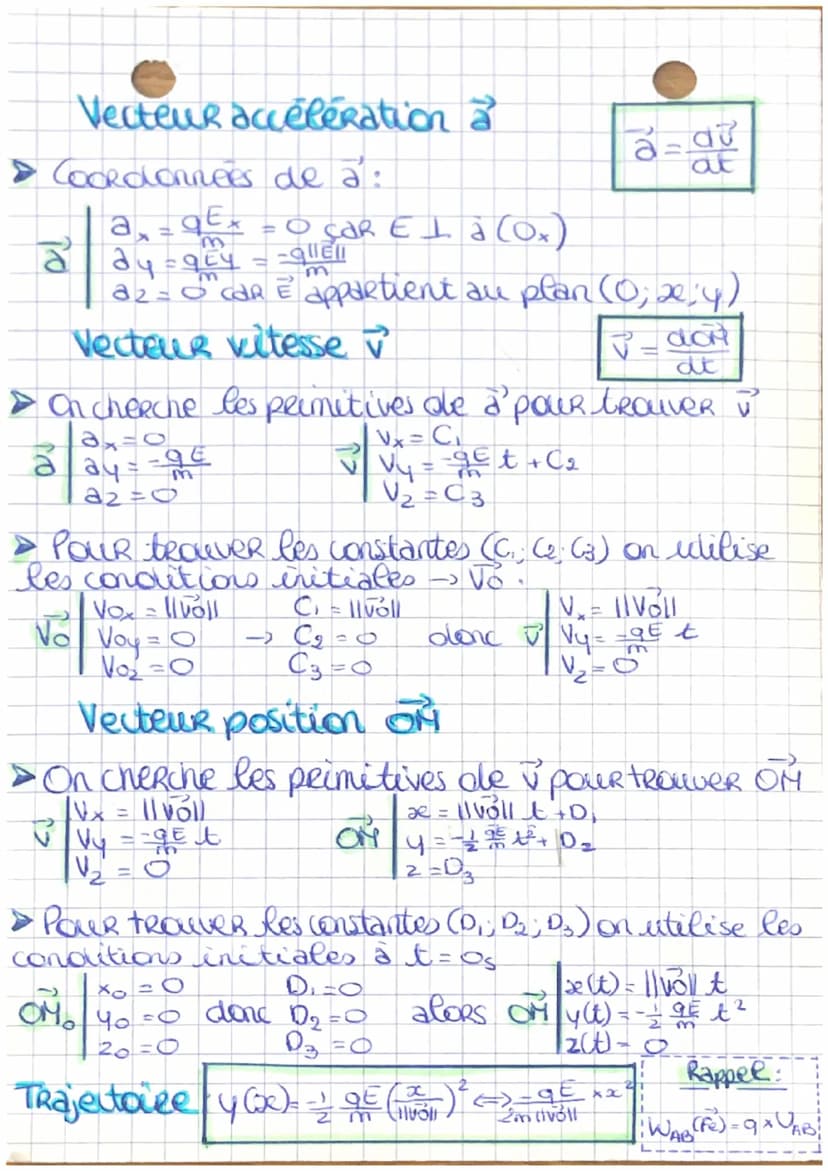 Vecteur accélération a⃗
a⃗ = dv⃗/dt
➤ Coordonnées de a⃗ :
a⃗ | ax = qEx/m = 0 car E ⊥ à (Ox)
ay = qEy/m = -q||E||/m
az = 0 car E⃗ appartient au plan (O; x; y)
Vecteur vitesse v⃗
v⃗ = dOM⃗/dt
➤ On cherche les primitives de a⃗ pour trouver v⃗
a⃗ | ax = 0
ay = -qE/m
az = 0
v⃗ | Vx = C1
Vy = -qE/m t + C2
Vz = C3
➤ Pour trouver les constantes (C1; C2; C3) on utilise
les conditions initiales → V0⃗.
V0⃗ | V0x = ||v0⃗||
V0y = 0
V0z = 0
→ C1 = ||v0⃗||
C2 = 0
C3 = 0
donc v⃗ | Vx = ||V0⃗||
Vy = -qE/m t
Vz = 0
Vecteur position OM⃗
➤ On cherche les primitives de v⃗ pour trouver OM⃗
v⃗ | Vx = ||v0⃗||
Vy = -qE/m t
Vz = 0
OM⃗ | x = ||v0⃗|| t + D1
y = -1/2 qE/m t² + D2
z = D3
➤ Pour trouver les constantes (D1; D2; D3) on utilise les
conditions initiales à t = 0s
OM⃗0 | x0 = 0
y0 = 0
z0 = 0
donc D1 = 0
D2 = 0
D3 = 0
alors OM⃗ | x(t) = ||v0⃗|| t
y(t) = -1/2 qE/m t²
z(t) = 0
Trajectoire
y(x) = -1/2 qE/m (x/||v0⃗||)² ⟺ -qE/2m||v0|| × x²
Rappel :
WAB(Fe⃗) = q × UAB